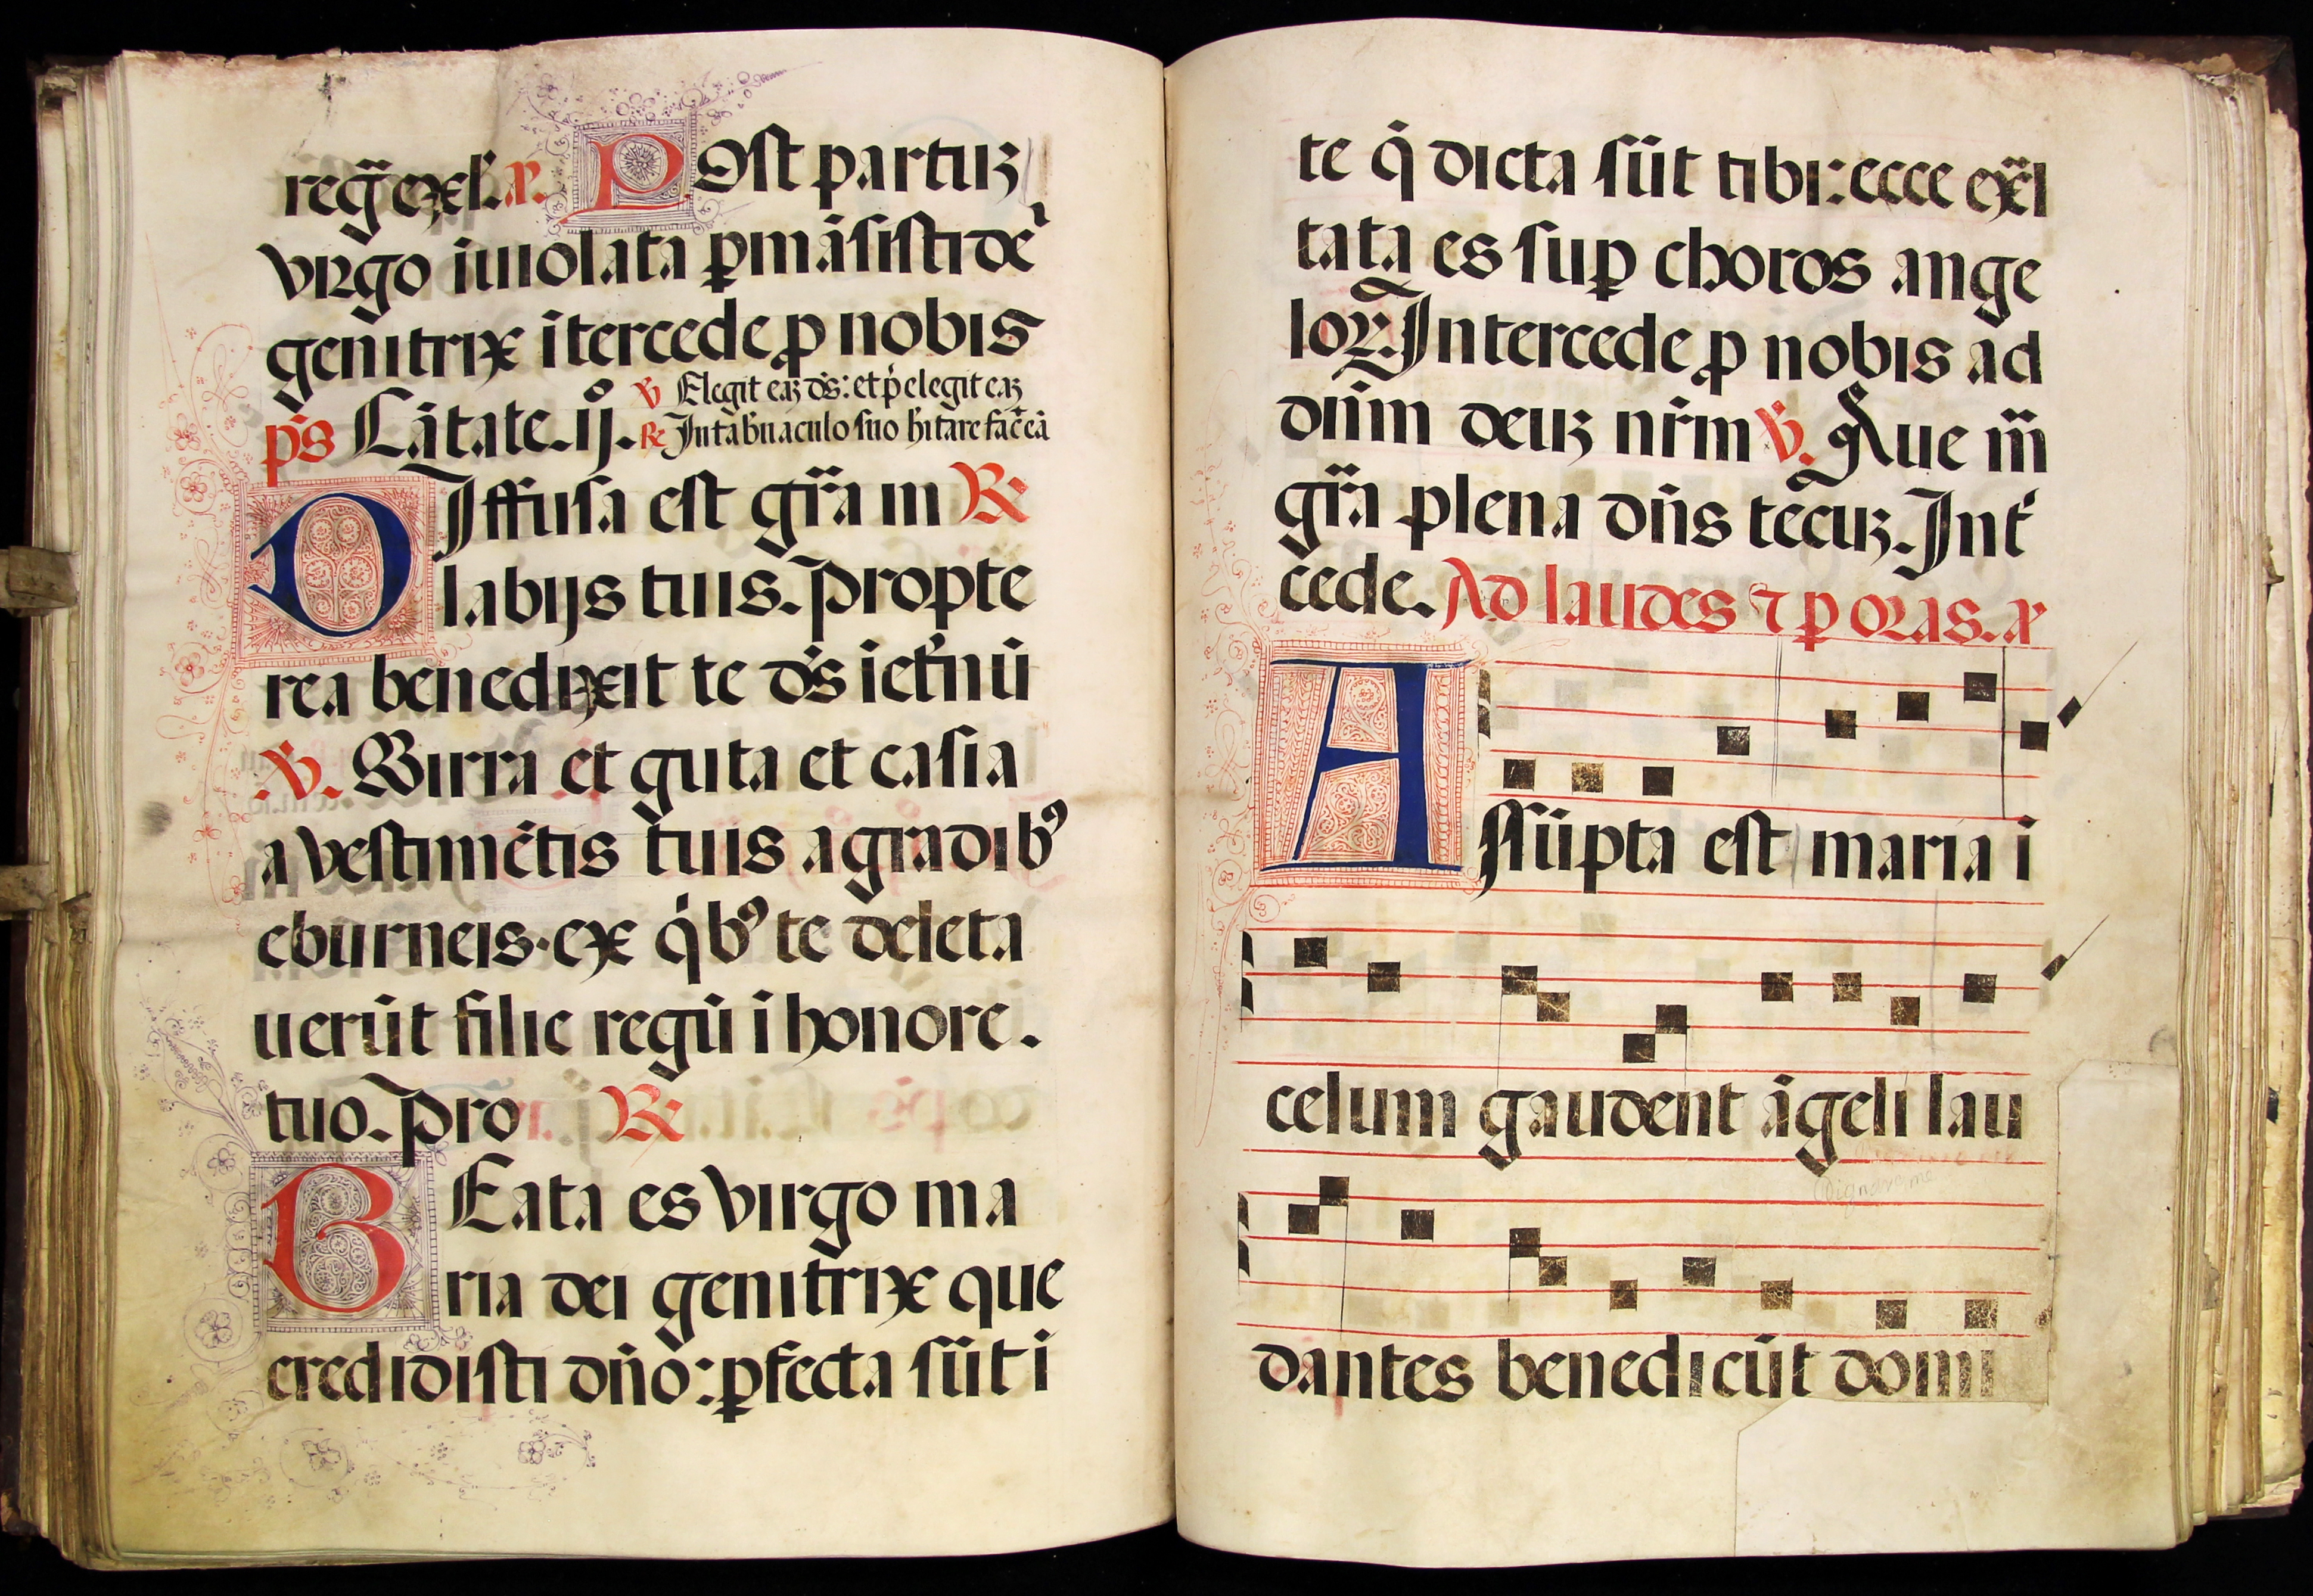 reḡ exel̄. a͞. Post partuʒ
virgo iuiolata ꝑmāsisti dē
genitrix ītercede ꝓ nobis
p̄s Cātate. ij.
℣ Elegit eaʒ dn̄s: et p̄elegit eaʒ
℟ In tab̄naculo suo h̄itare fac̄ eā
DIffusa est gr̄a in ℟
labijs tuis. Propte
rea benedixit te ds̄ i et̄nū
.℣. Mirra et guta et casia
a vestimētis tuis a gradibꝰ
eburneis. ex q̇bꝰ te delecta
uerūt filie regū i honore.
tuo. Pro ℟
BEata es virgo ma
ria dei genitrix que
credidisti dn̄o: ꝑfecta sūt i
te q̇ dicta sūt tibi: ecce ex̄l
tata es suꝑ choros ange
loꝝ. Intercede ꝓ nobis ad
dn̄m deuʒ nr̄m ℣. Aue m̄
gr̄a plena dn̄s tēcuʒ. Int̄
cede. Ad laudes ⁊ ꝑ oras. a͞
ASsūpta est maria i
celum gaudent āgeli lau
Dignare me
dantes benedicūt domi